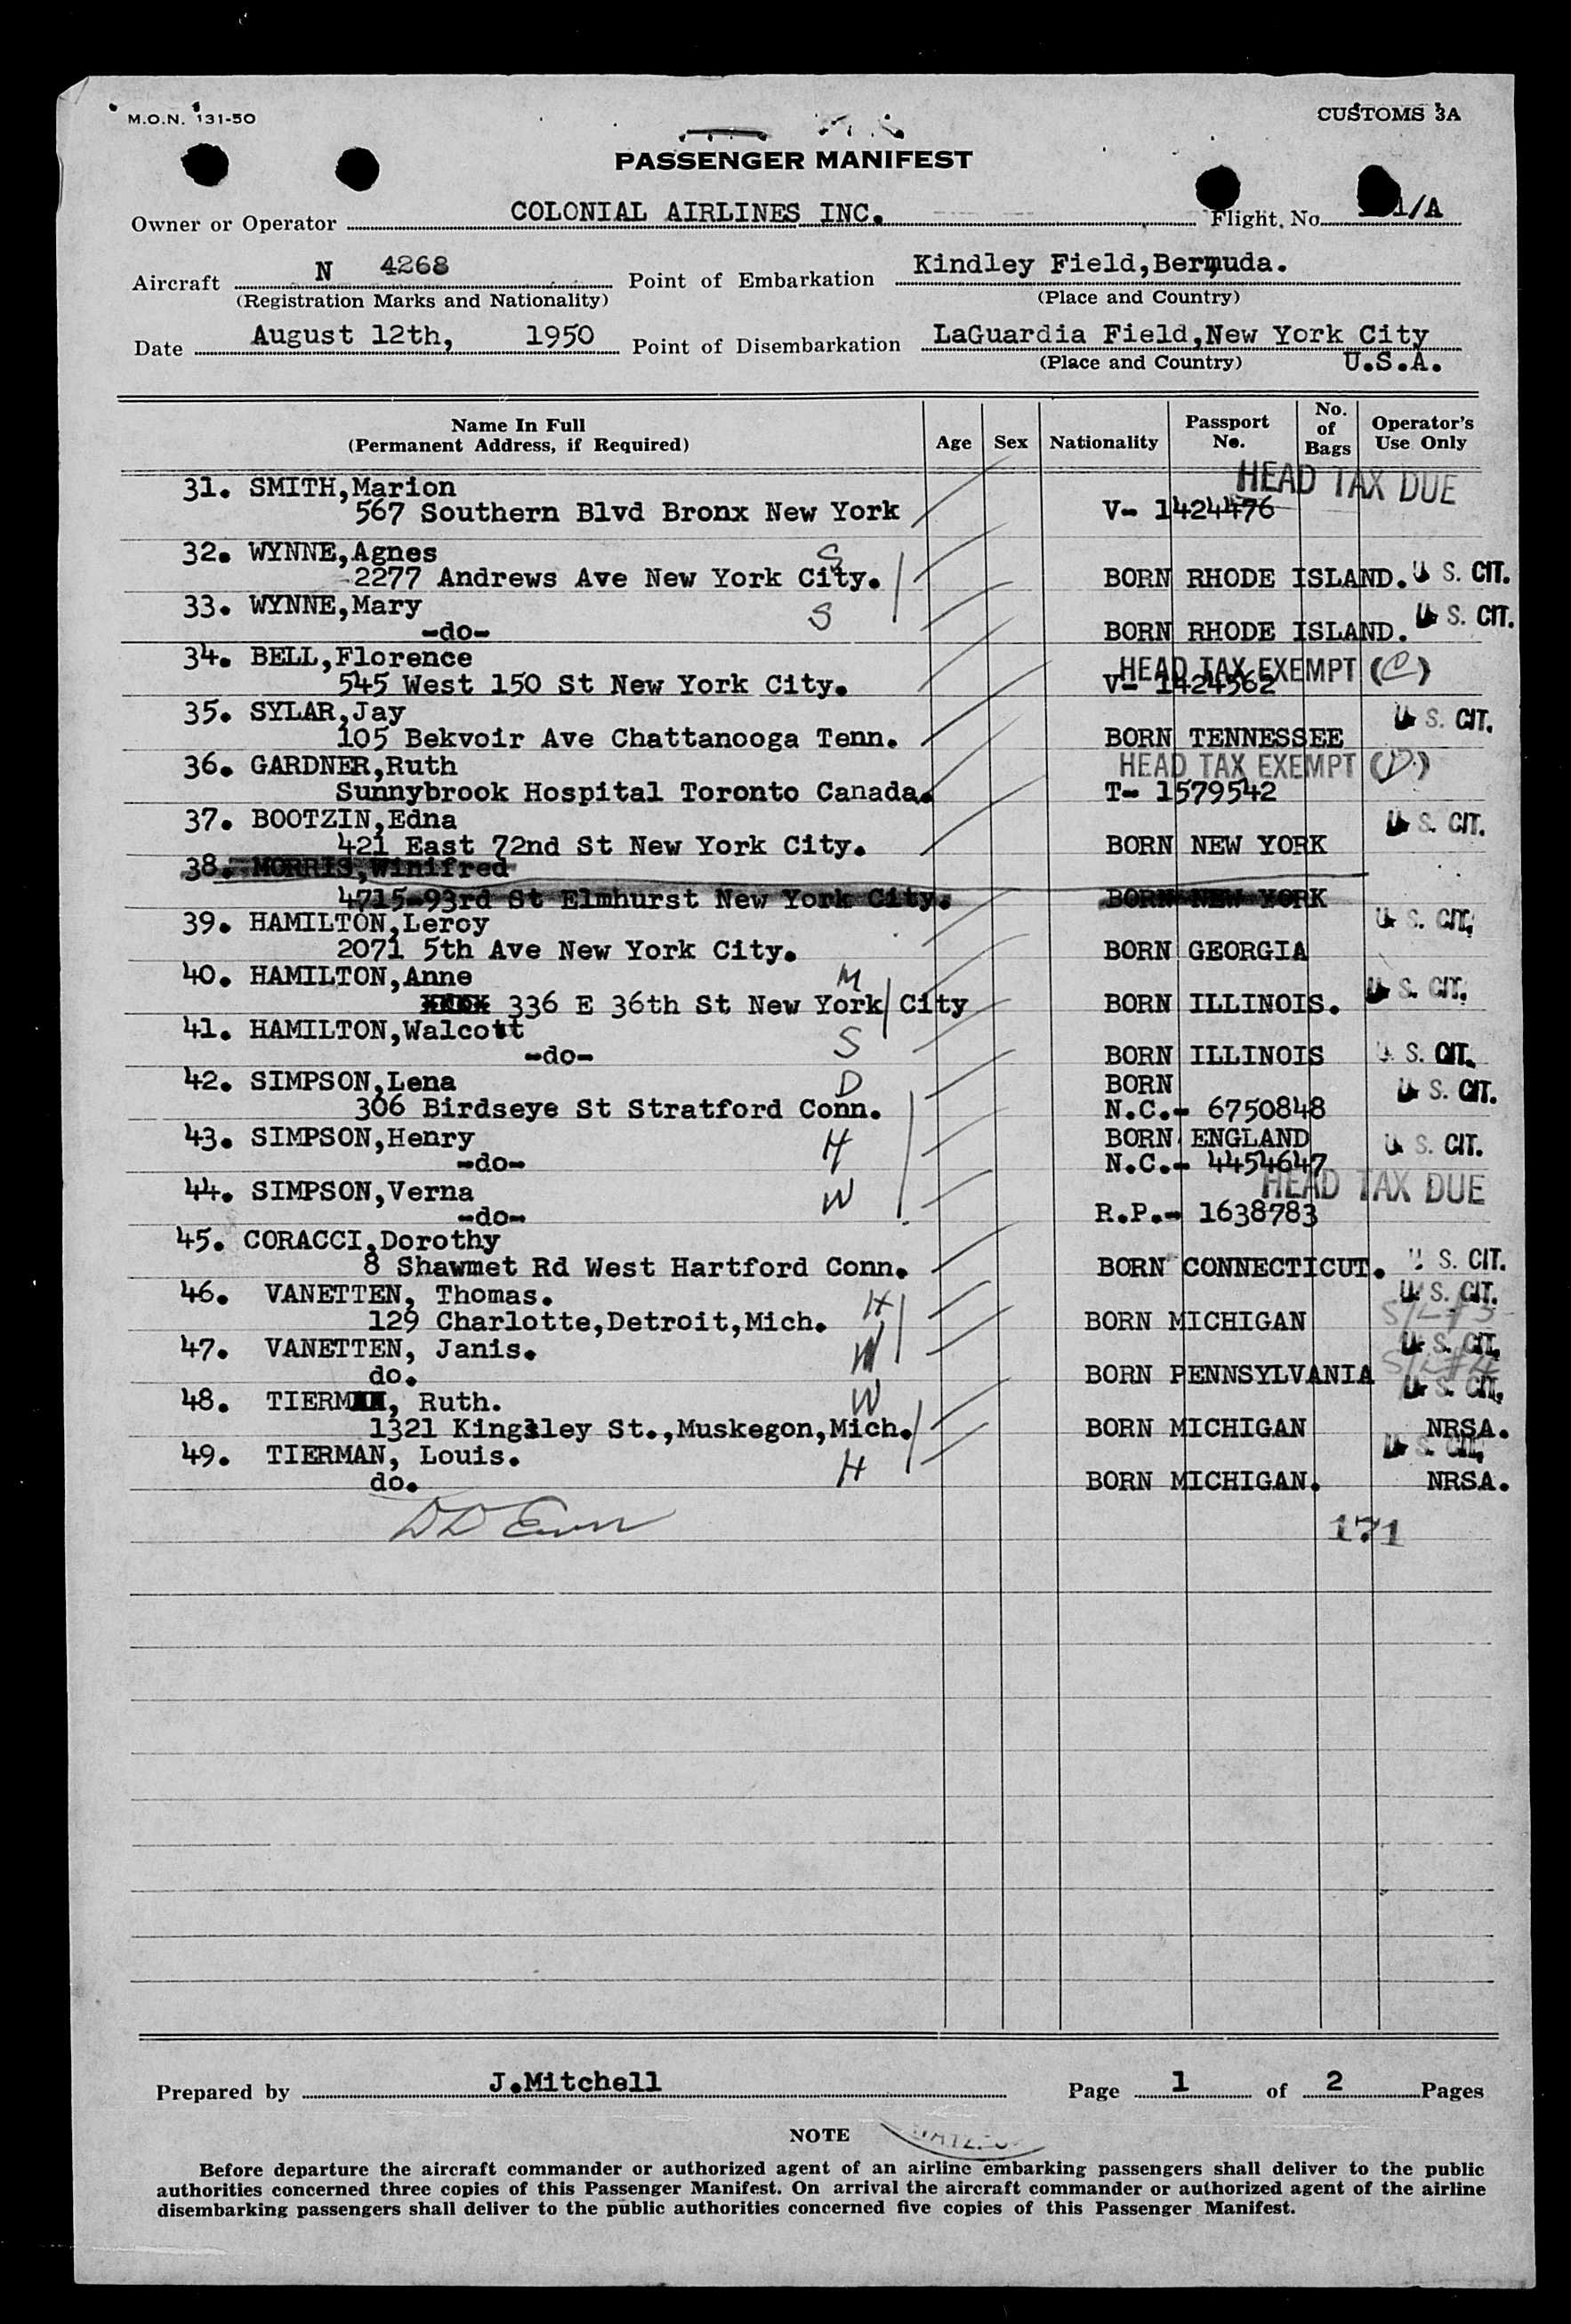 M.O.N. 131-50
CUSTOMS 3A
PASSENGER MANIFEST
Owner or Operator COLONIAL AIRLINES INC. Flight, No 1/A
Aircraft N 4268 Point of Embarkation Kindley Field,Bermuda.
(Registration Marks and Nationality) (Place and Country)
Date August 12th, 1950 Point of Disembarkation LaGuardia Field,New York City
(Place and Country) U.S.A.
Name In Full (Permanent Address, if Required) Age Sex Nationality Passport No. No. of Bags Operator's Use Only
31. SMITH,Marion HEAD TAX DUE
567 Southern Blvd Bronx New York V- 1424476
32. WYNNE,Agnes S
2277 Andrews Ave New York City. BORN RHODE ISLAND. U S. CIT.
33. WYNNE,Mary S U S. CIT.
-do- BORN RHODE ISLAND.
34. BELL,Florence HEAD TAX EXEMPT (C)
545 West 150 St New York City. V- 1424562
35. SYLAR,Jay U S. CIT.
105 Bekvoir Ave Chattanooga Tenn. BORN TENNESSEE
36. GARDNER,Ruth HEAD TAX EXEMPT (D)
Sunnybrook Hospital Toronto Canada. T- 1579542
37. BOOTZIN,Edna U S. CIT.
421 East 72nd St New York City. BORN NEW YORK
38. MORRIS,Winifred
4715-93rd St Elmhurst New York City. BORN NEW YORK
39. HAMILTON,Leroy U S. CIT.
2071 5th Ave New York City. BORN GEORGIA
40. HAMILTON,Anne M
336 E 36th St New York City BORN ILLINOIS. U S. CIT.
41. HAMILTON,Walcott S
-do- BORN ILLINOIS U S. CIT.
42. SIMPSON,Lena D BORN U S. CIT.
306 Birdseye St Stratford Conn. N.C.- 6750848
43. SIMPSON,Henry H BORN ENGLAND U S. CIT.
-do- N.C.- 4454647
44. SIMPSON,Verna W HEAD TAX DUE
-do- R.P.- 1638783
45. CORACCI,Dorothy
8 Shawmet Rd West Hartford Conn. BORN CONNECTICUT. U S. CIT.
46. VANETTEN, Thomas. H U S. CIT.
129 Charlotte,Detroit,Mich. BORN MICHIGAN
47. VANETTEN, Janis. W U S. CIT.
do. BORN PENNSYLVANIA
48. TIERMAN, Ruth. W U S. CIT.
1321 Kingsley St.,Muskegon,Mich. BORN MICHIGAN NRSA.
49. TIERMAN, Louis. H U S. CIT.
do. BORN MICHIGAN. NRSA.
171
Prepared by J.Mitchell Page 1 of 2 Pages
NOTE
Before departure the aircraft commander or authorized agent of an airline embarking passengers shall deliver to the public
authorities concerned three copies of this Passenger Manifest. On arrival the aircraft commander or authorized agent of the airline
disembarking passengers shall deliver to the public authorities concerned five copies of this Passenger Manifest.